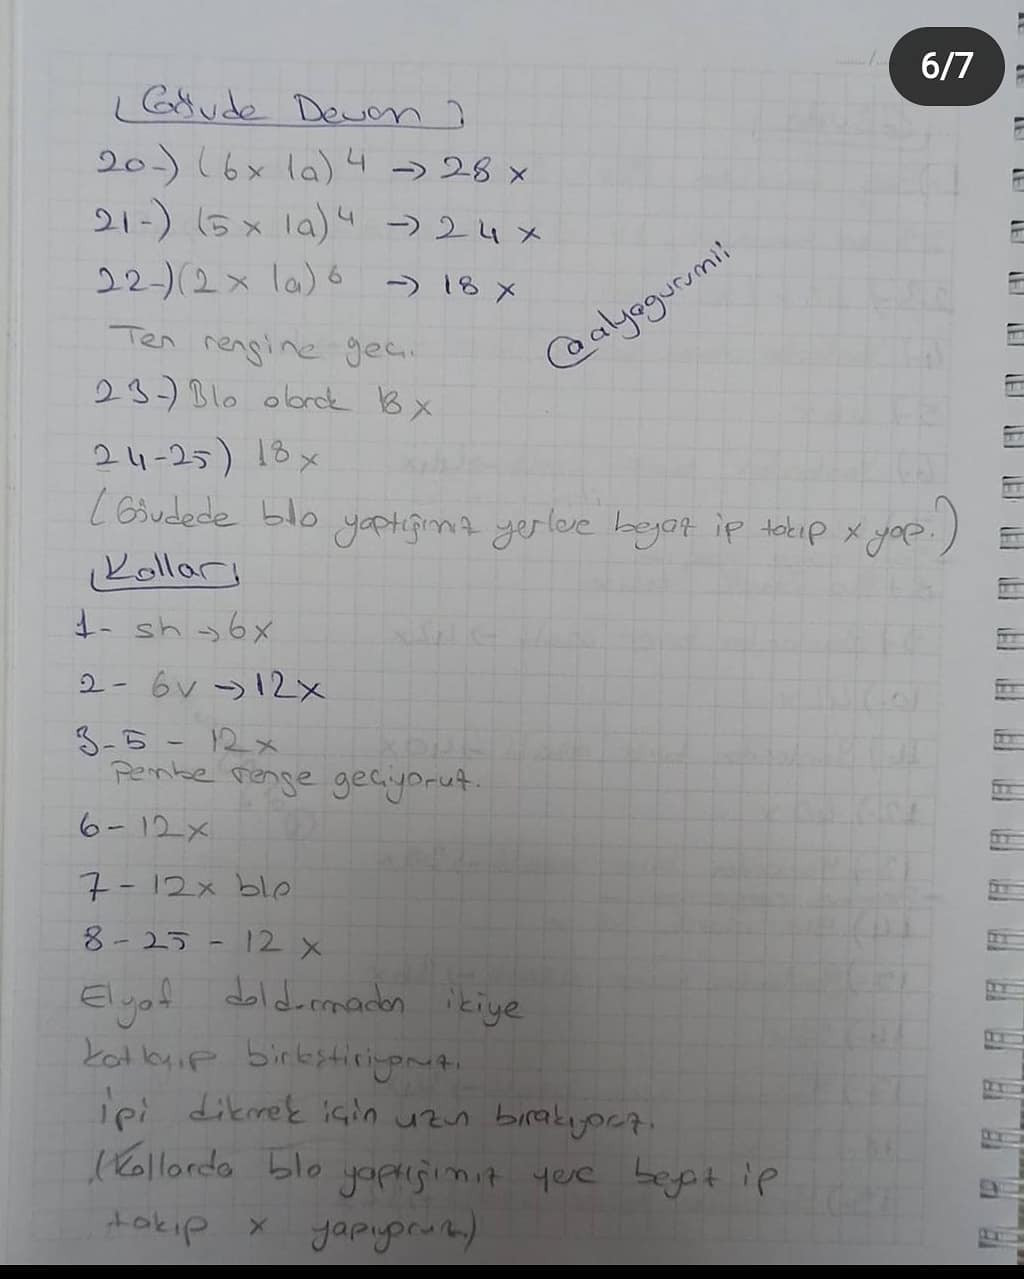 6/7
(Gövde Devam)
20-) (6x 1a) 4 → 28 x
21-) (5x 1a) 4 → 24 x
22-) (2x 1a) 6 → 18 x
@alyagurumii
Ten rengine geç.
23-) Blo olarak 18 x
24-25) 18 x
(Gövdede blo yaptığımız yerlere beyaz ip takıp x yap.)
(Kollar)
1- sh → 6x
2 - 6v → 12x
3-5 - 12x
Pembe renge geçiyoruz.
6 - 12x
7 - 12x blo
8 - 25 - 12 x
Elyaf doldurmadan ikiye
katlayıp birleştiriyoruz.
İpi dikmek için uzun bırakıyoruz.
(Kollarda blo yaptığımız yere beyaz ip
takıp x yapıyoruz)